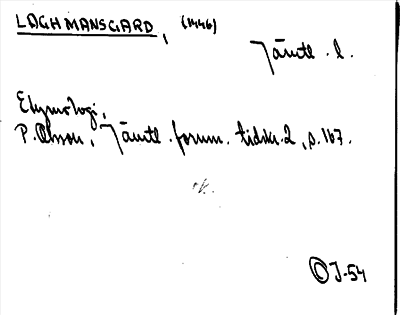 LAGHMANSGARD, (1446)
Jämtl. l.
Etymologi,
P. Olsson, Jämtl. fornm. tidskr. 2, s. 167.
ok.
O J-54